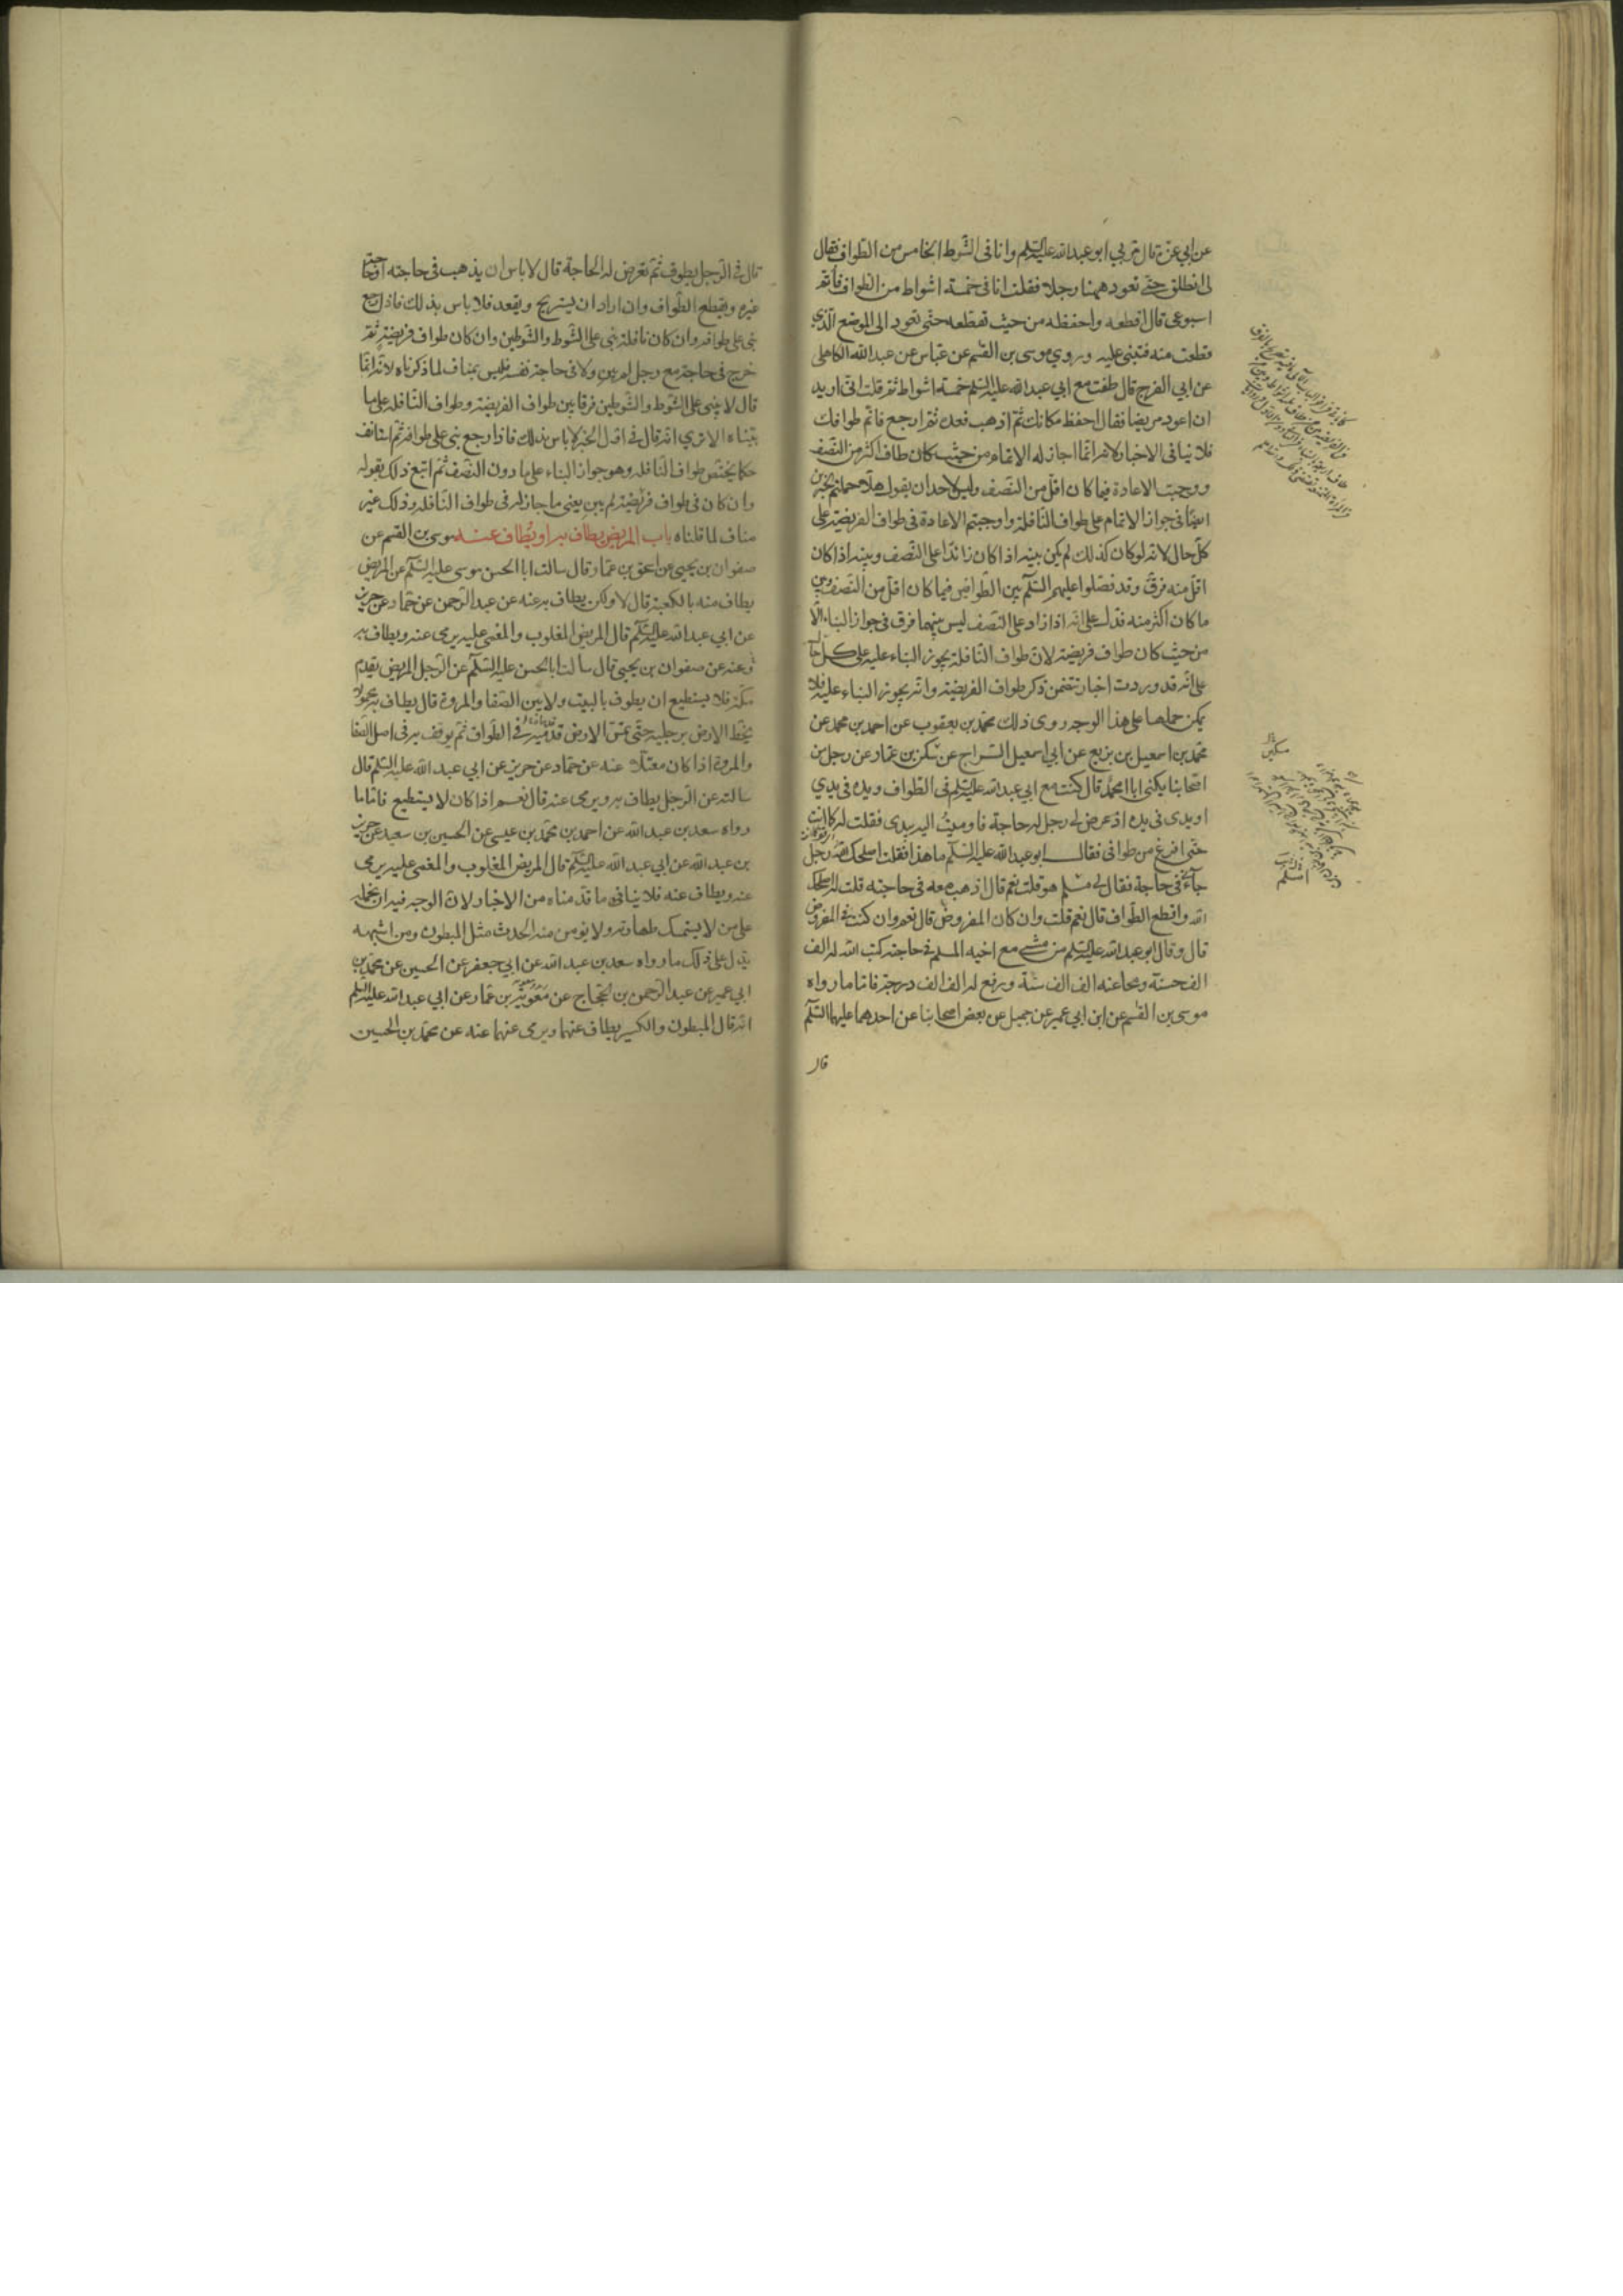 عن ابي عزة قال مر بي ابو عبد الله عليه السلم وانا في الشوط الخامس من الطواف فقال
لي انطلق حتى نعود ههنا رجلا فقلت انا في خمسة اشواط من الطواف فاتم
اسبوعي قال اقطعه واحفظه من حيث تقطعه حتى تعود الى الموضع الذي
قطعت منه فتبني عليه وروي موسى بن القسم عن عباس عن عبد الله الكاهلي
عن ابي الفرج قال طفت مع ابي عبد الله عليه السلم خمسة اشواط ثم قلت اني اريد
ان اعود مريضا فقال احفظ مكانك ثم اذهب فعده ثم ارجع فاتم طوافك
فلا ينافي الاخبار لانه انما اجاز له الاتمام من حيث كان طاف اكثر من النصف
ووجبت الاعادة فيما كان اقل من النصف وليس لاحد ان يقول هلا حملتم الخبرين
ايضا في جواز الاتمام على طواف النافلة واوجبتم الاعادة في طواف الفريضة على
كل حال لانه لو كان كذلك لم يكن بينه اذا كان زائدا على النصف وبينه اذا كان
اقل منه فرق وقد فصلوا عليهم السلم بين الطوافين فيما كان اقل من النصف وبين
ما كان اكثر منه فدل على انه اذا زاد على النصف ليس بينهما فرق في جواز البناء الا
من حيث كان طواف فريضة لان طواف النافلة يجوز البناء عليه على كل حال
على انه قد وردت اخبار تتضمن ذكر طواف الفريضة وانه يجوز البناء عليه فلا
يمكن حملها على هذا الوجه روى ذلك محمد بن يعقوب عن احمد بن محمد عن
محمد بن اسمعيل بن بزيع عن ابي اسمعيل السراج عن سكن بن عمار عن رجل من
اصحابنا يكنى ابا محمد قال كنت مع ابي عبد الله عليه السلم في الطواف ويده في يدي
او يدي في يده اذ عرض لي رجل له حاجة فاوميت اليه بيدي فقلت له كما انت
حتى افرغ من طوافي فقال ابو عبد الله عليه السلم ما هذا فقلت اصلحك الله رجل
جآءني في حاجة فقال لي مسلم هو قلت نعم قال اذهب معه في حاجته قلت له اصلحك
الله واقطع الطواف قال نعم قلت وان كان المفروض قال نعم وان كنت في المفروض
قال وقال ابو عبد الله عليه السلم من مشى مع اخيه المسلم في حاجته كتب الله له الف
الف حسنة ومحا عنه الف الف سيئة ورفع له الف الف درجة فاما ما رواه
موسى بن القسم عن ابن ابي عمير عن جميل عن بعض اصحابنا عن احدهما عليهما السلم
قال
مسكين
قال في الرجل يطوف ثم تعرض له الحاجة قال لا باس ان يذهب في حاجته او حاجة
غيره ويقطع الطواف وان اراد ان يستريح ويقعد فلا باس بذلك فاذا رجع
بنى على طوافه وان كان نافلة بنى على الشوط والشوطين وان كان طواف فريضة ثم
خرج في حاجة مع رجل لم يبن ولا في حاجة نفسه فليس بمناف لما ذكرناه لانه انما
قال لا يبنى على الشوط والشوطين فرقا بين طواف الفريضة وطواف النافلة على ما
بيناه الا ترى انه قال في اول الخبر لا باس بذلك فاذا رجع بنى على طوافه ثم استانف
حكما يختص طواف النافلة وهو جواز البناء على ما دون النصف ثم اتبع ذلك بقوله
وان كان في طواف فريضة لم يبن يعني ما جاز له في طواف النافلة وذلك غير
مناف لما قلناه باب المريض يطاف به او يطاف عنه موسى بن القسم عن
صفوان بن يحيى عن اسحق بن عمار قال سالت ابا الحسن موسى عليه السلم عن المريض
يطاف عنه بالكعبة قال لا ولكن يطاف به عنه عن عبد الرحمن عن حماد عن حريز
عن ابي عبد الله عليه السلم قال المريض المغلوب والمغمى عليه يرمى عنه ويطاف به
وعنه عن صفوان بن يحيى قال سالت ابا الحسن عليه السلم عن الرجل المريض يقدم
مكة فلا يستطيع ان يطوف بالبيت ولا بين الصفا والمروة قال يطاف به محمولا
يخط الارض برجليه حتى تمس الارض قدميه في الطواف ثم يوقف به في اصل الصفا
والمروة اذا كان معتلا عنه عن حماد عن حريز عن ابي عبد الله عليه السلم قال
سالته عن الرجل يطاف به ويرمى عنه قال نعم اذا كان لا يستطيع فاما ما
رواه سعد بن عبد الله عن احمد بن محمد بن عيسى عن الحسين بن سعيد عن حريز
بن عبد الله عن ابي عبد الله عليه السلم قال المريض المغلوب والمغمى عليه يرمى
عنه ويطاف عنه فلا ينافي ما قدمناه من الاخبار لان الوجه فيه ان نحمله
على من لا يستمسك طهارته ولا يؤمن منه الحدث مثل المبطون ومن اشبهه
يدل على ذلك ما رواه سعد بن عبد الله عن ابي جعفر عن الحسين عن محمد بن
ابي عمير عن عبد الرحمن بن الحجاج عن معوية بن عمار عن ابي عبد الله عليه السلم
انه قال المبطون والكسير يطاف عنهما ويرمى عنهما عنه عن محمد بن الحسين